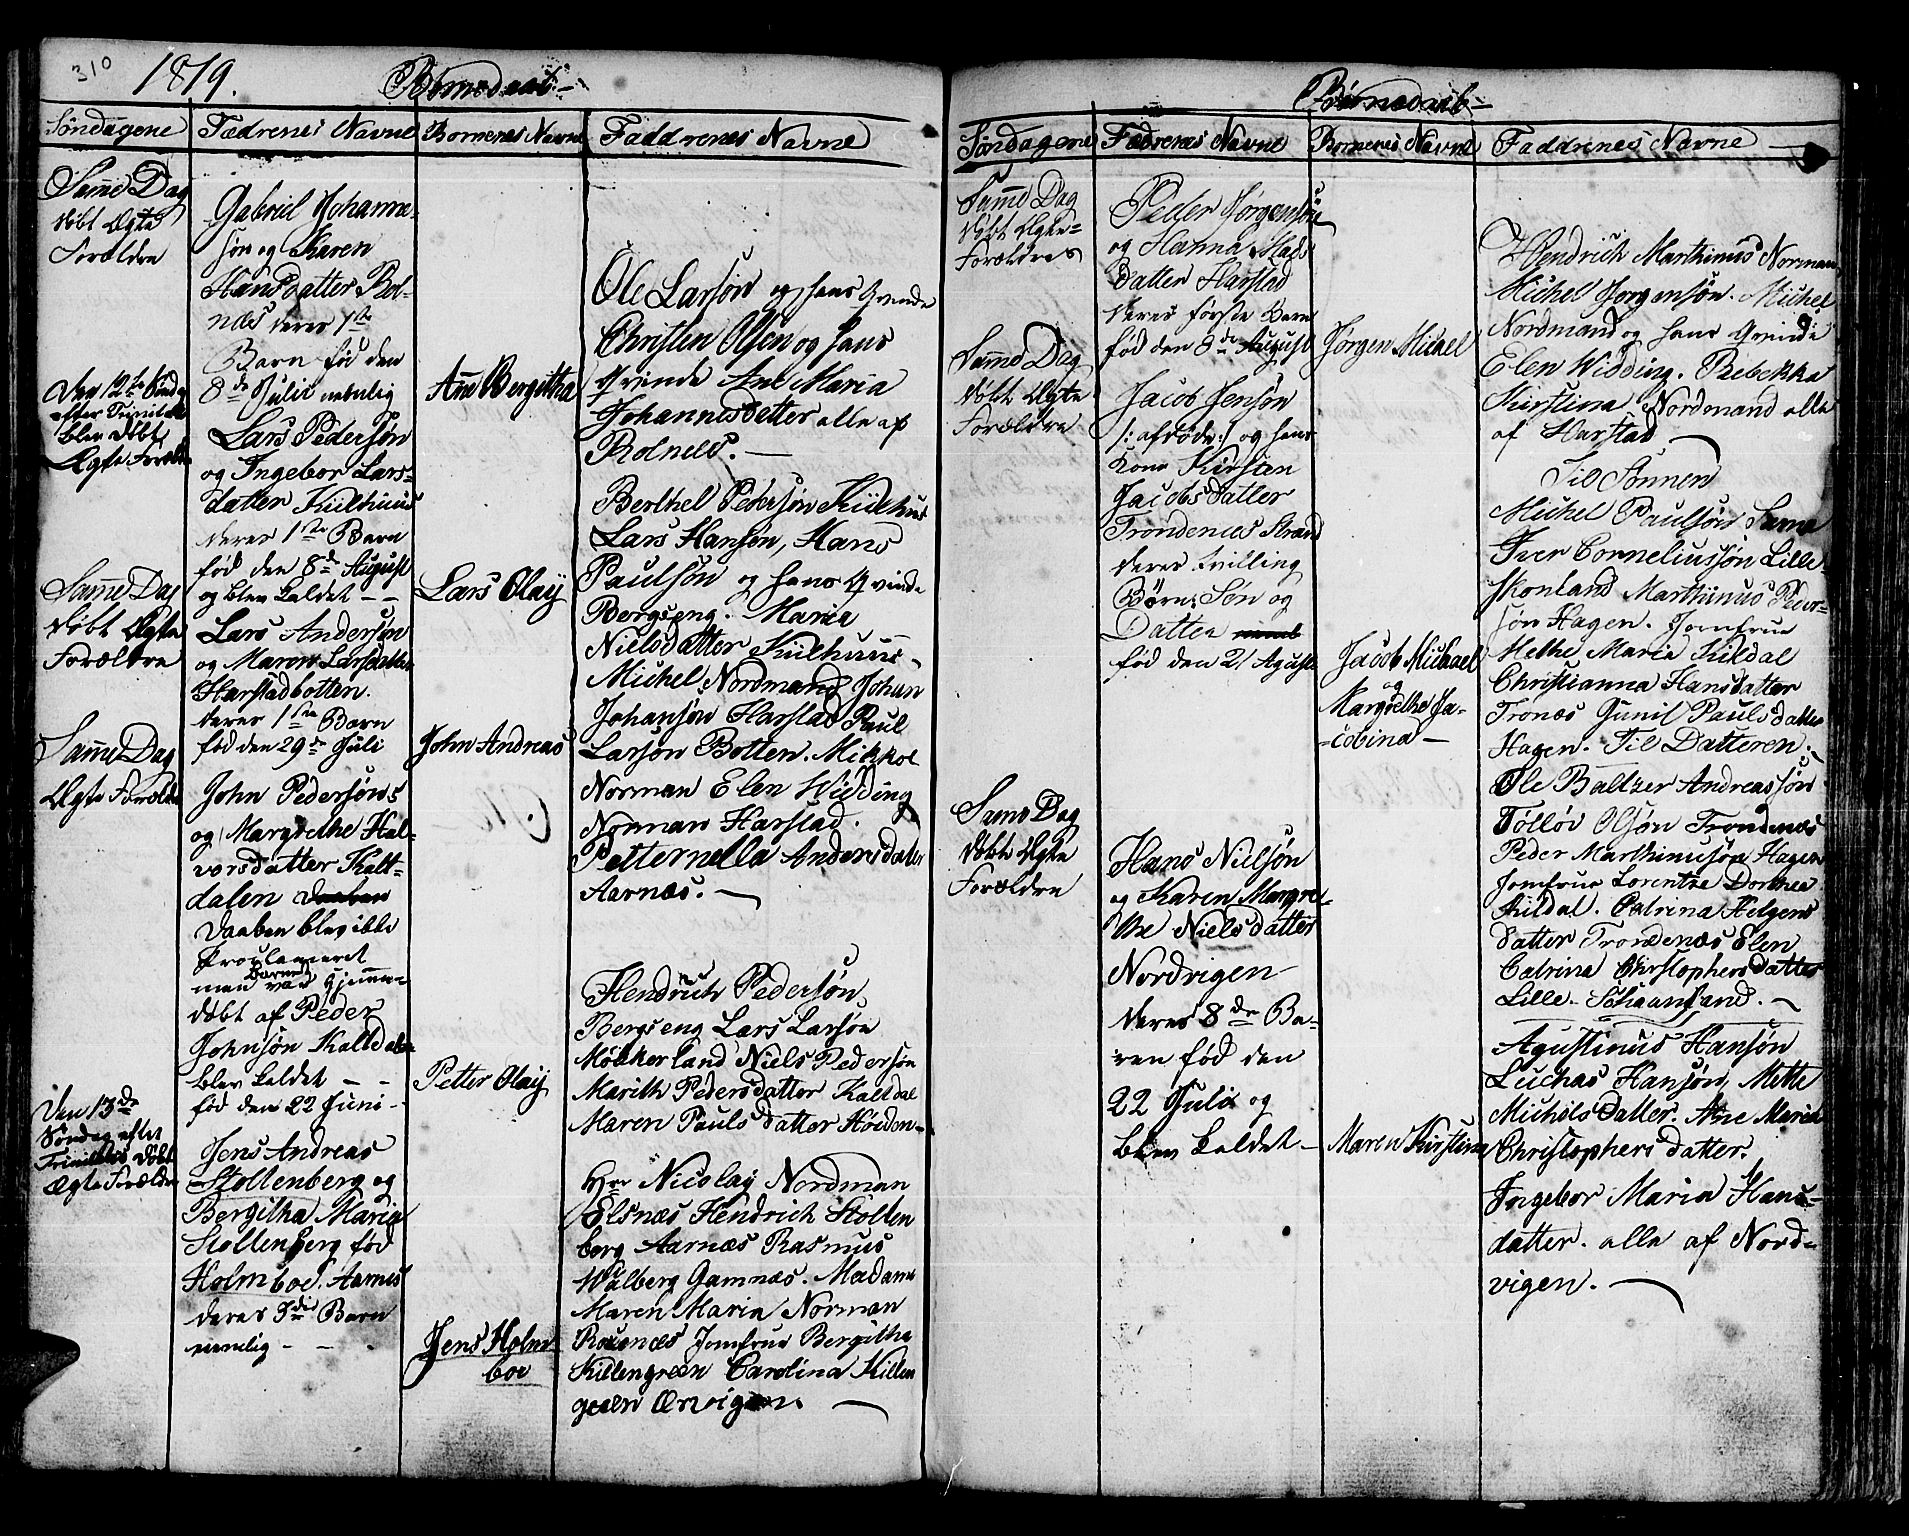 310
1819.
Børnedaab –
Søndagene
Fædrenes Navne
Bornenes Navne
Faddrenes Navne
Samme Dag
døbt Ægte
Forældre
Gabriel Johanne-
søn og Karen
Hansdatter Rol-
næs deres 1ste
Barn fød den
8de Julii nemlig
Ane Bergitha
Ole Larsøn og hans Qvinde
Christen Olsen og hans
Qvinde Ane Maria
Johannesdatter alle af
Rolnes. –
Den 12te Sønd
efter Trinitatis
blev døbt
Ægte Foræld
Lars Pedersøn
og Ingebor Lars-
datter Kiilhuus
deres 1ste Barn
fød den 8de August
og blev kaldet – –
Lars Olaij
Berthel Pedersøn Kiilhus
Lars Hansøn, Hans
Paulsøn og hans Qvinde
Bergseng. Maria
Nielsdatter Kiilhuus
Samme Dag
døbt Ægte
Forældre
Lars Andersøn
og Maren Larsdatter
Harstadbotten.
deres 1ste Barn
fød den 29de Juli
John Andreas
Michel Nordmand Johan
Johansøn Harstad Paul
Larsøn Botten. Mikkol
Norman Elen Widding
Norman Harstad.
Petternella Andersdatter
Aarnæs. –
Samme Dag
Ægte Forældre
John Pedersøns
og Margrethe Hal-
vorsdatter Kalt-
dalen Daaben
Daaben blev ikke
Proclameret
men Barnet var hjemme-
døbt af Peder
Johnsøn Kaltdalen
blev kaldet – –
fød den 22 Juni –
Petter Olaij
Hendrich Pedersøn
Bergseng Lars Larsøn
Møkkerland Niels Pedersøn
Marith Pedersdatter Kaltdal
Maren Pauls datter
Den 13de
Søndag efter
Trinitatis døbt
Ægte Forældre
Jens Andreas
Stoltenberg og
Bergitha Maria
Stoltenberg fød
Holmboe. Aarnes
deres 3die Barn
nemlig – –
Jens Holm
boe
Hrr Nicolay Nordman
Elsnæs Hendrich Stolten
berg Aarnæs Rasmus
Walberg Gamnæs. Madame
Maren Maria Norman
Roxenæs Jomfrue Bergitha
Killengreen Carolina Killen
green Ærvigen. –
Børnedaab –
Søndagene
Fædrenes Navne
Bornenes Navne
Faddrenes Navne
Samme Dag
døbt Ægte
Forældres
Peder Jørgensøn
og Hanna Mads
datter Harstad
deres første Barn
fød den 8de August
Jørgen Michel
Hendrich Marthinus Norman
Michel Jørgensøn. Michel
Nordmand og hans Qvinde
Elen Widding. Rebekka
Kirstina Nordmand alle
af Harstad –
Samme Dag
døbt Ægte
Forældre
Jacob Jensøn
/: afdøde :/ og hans
Kone Kirsten
Jacobsdatter
Trondenes Strand
deres tvilling
Børn: Søn og
Datter
fød den 21 Agusti
Jacob Michael
og
Margrethe Ja-
-cobina –
Til Sønnen
Michel Paulsøn Sama
Iver Corneliussøn Lille-
skonland Marthinus Peder-
søn Hagen. Jomfrue
Methe Maria Kildal
Christianna Hansdatter
Tronæs Gunil Pauls datter
Hagen. Til Datteren.
Ole Baltzer Andreassøn
Tølløv Olsøn Trondenæs
Peder Marthinusøn Hagen
Jomfrue Lorentze Dorthea
Kildal. Catrina Helgens
datter Trondenæs Elen
Catrina Christophersdatter
Lille- Schaanland. –
Samme Dag
døbt Ægte
Forældre
Hans Nielsøn
og Karen Margre-
the Nielsdatter
Nordvigen
deres 8de Ba-
ren fød den
22 Juli og
blev kaldet –
Maren Kirstina
Agustinus Hansøn
Luchas Hansøn, Mette
Michelsdatter. Ane Maria
Christophers datter.
Ingebor Maria Hans-
datter. alle af Nord-
vigen. –